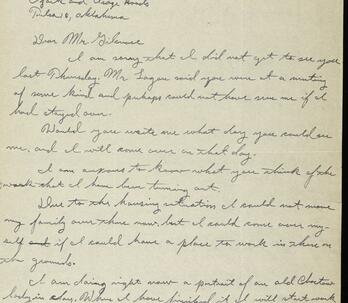 Ozark and Osage Woods
Tulsa, Oklahoma
Dear Mr Gilcrease
I am sorry that I did not get to see you
last Thursday. Mr Logan said you were at a meeting
of some kind and perhaps could not have seen me if I
had stayed over.
Would you write me what day you could see
me, and I will come over on that day.
I am anxious to know what you think of the
work that I have been turning out.
Due to the housing situation I could not move
my family over there now, but I could come over my-
self and if I could have a place to work in there on
the grounds.
I am doing right now a portrait of an old Choctaw
lady in clay. When I have finished it I will start work